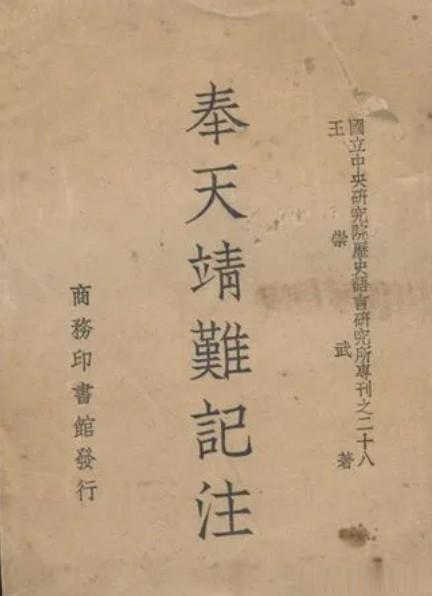 國立中央研究院歷史語言研究所專刊之二十八
王崇武著
奉天靖難記注
商務印書館發行